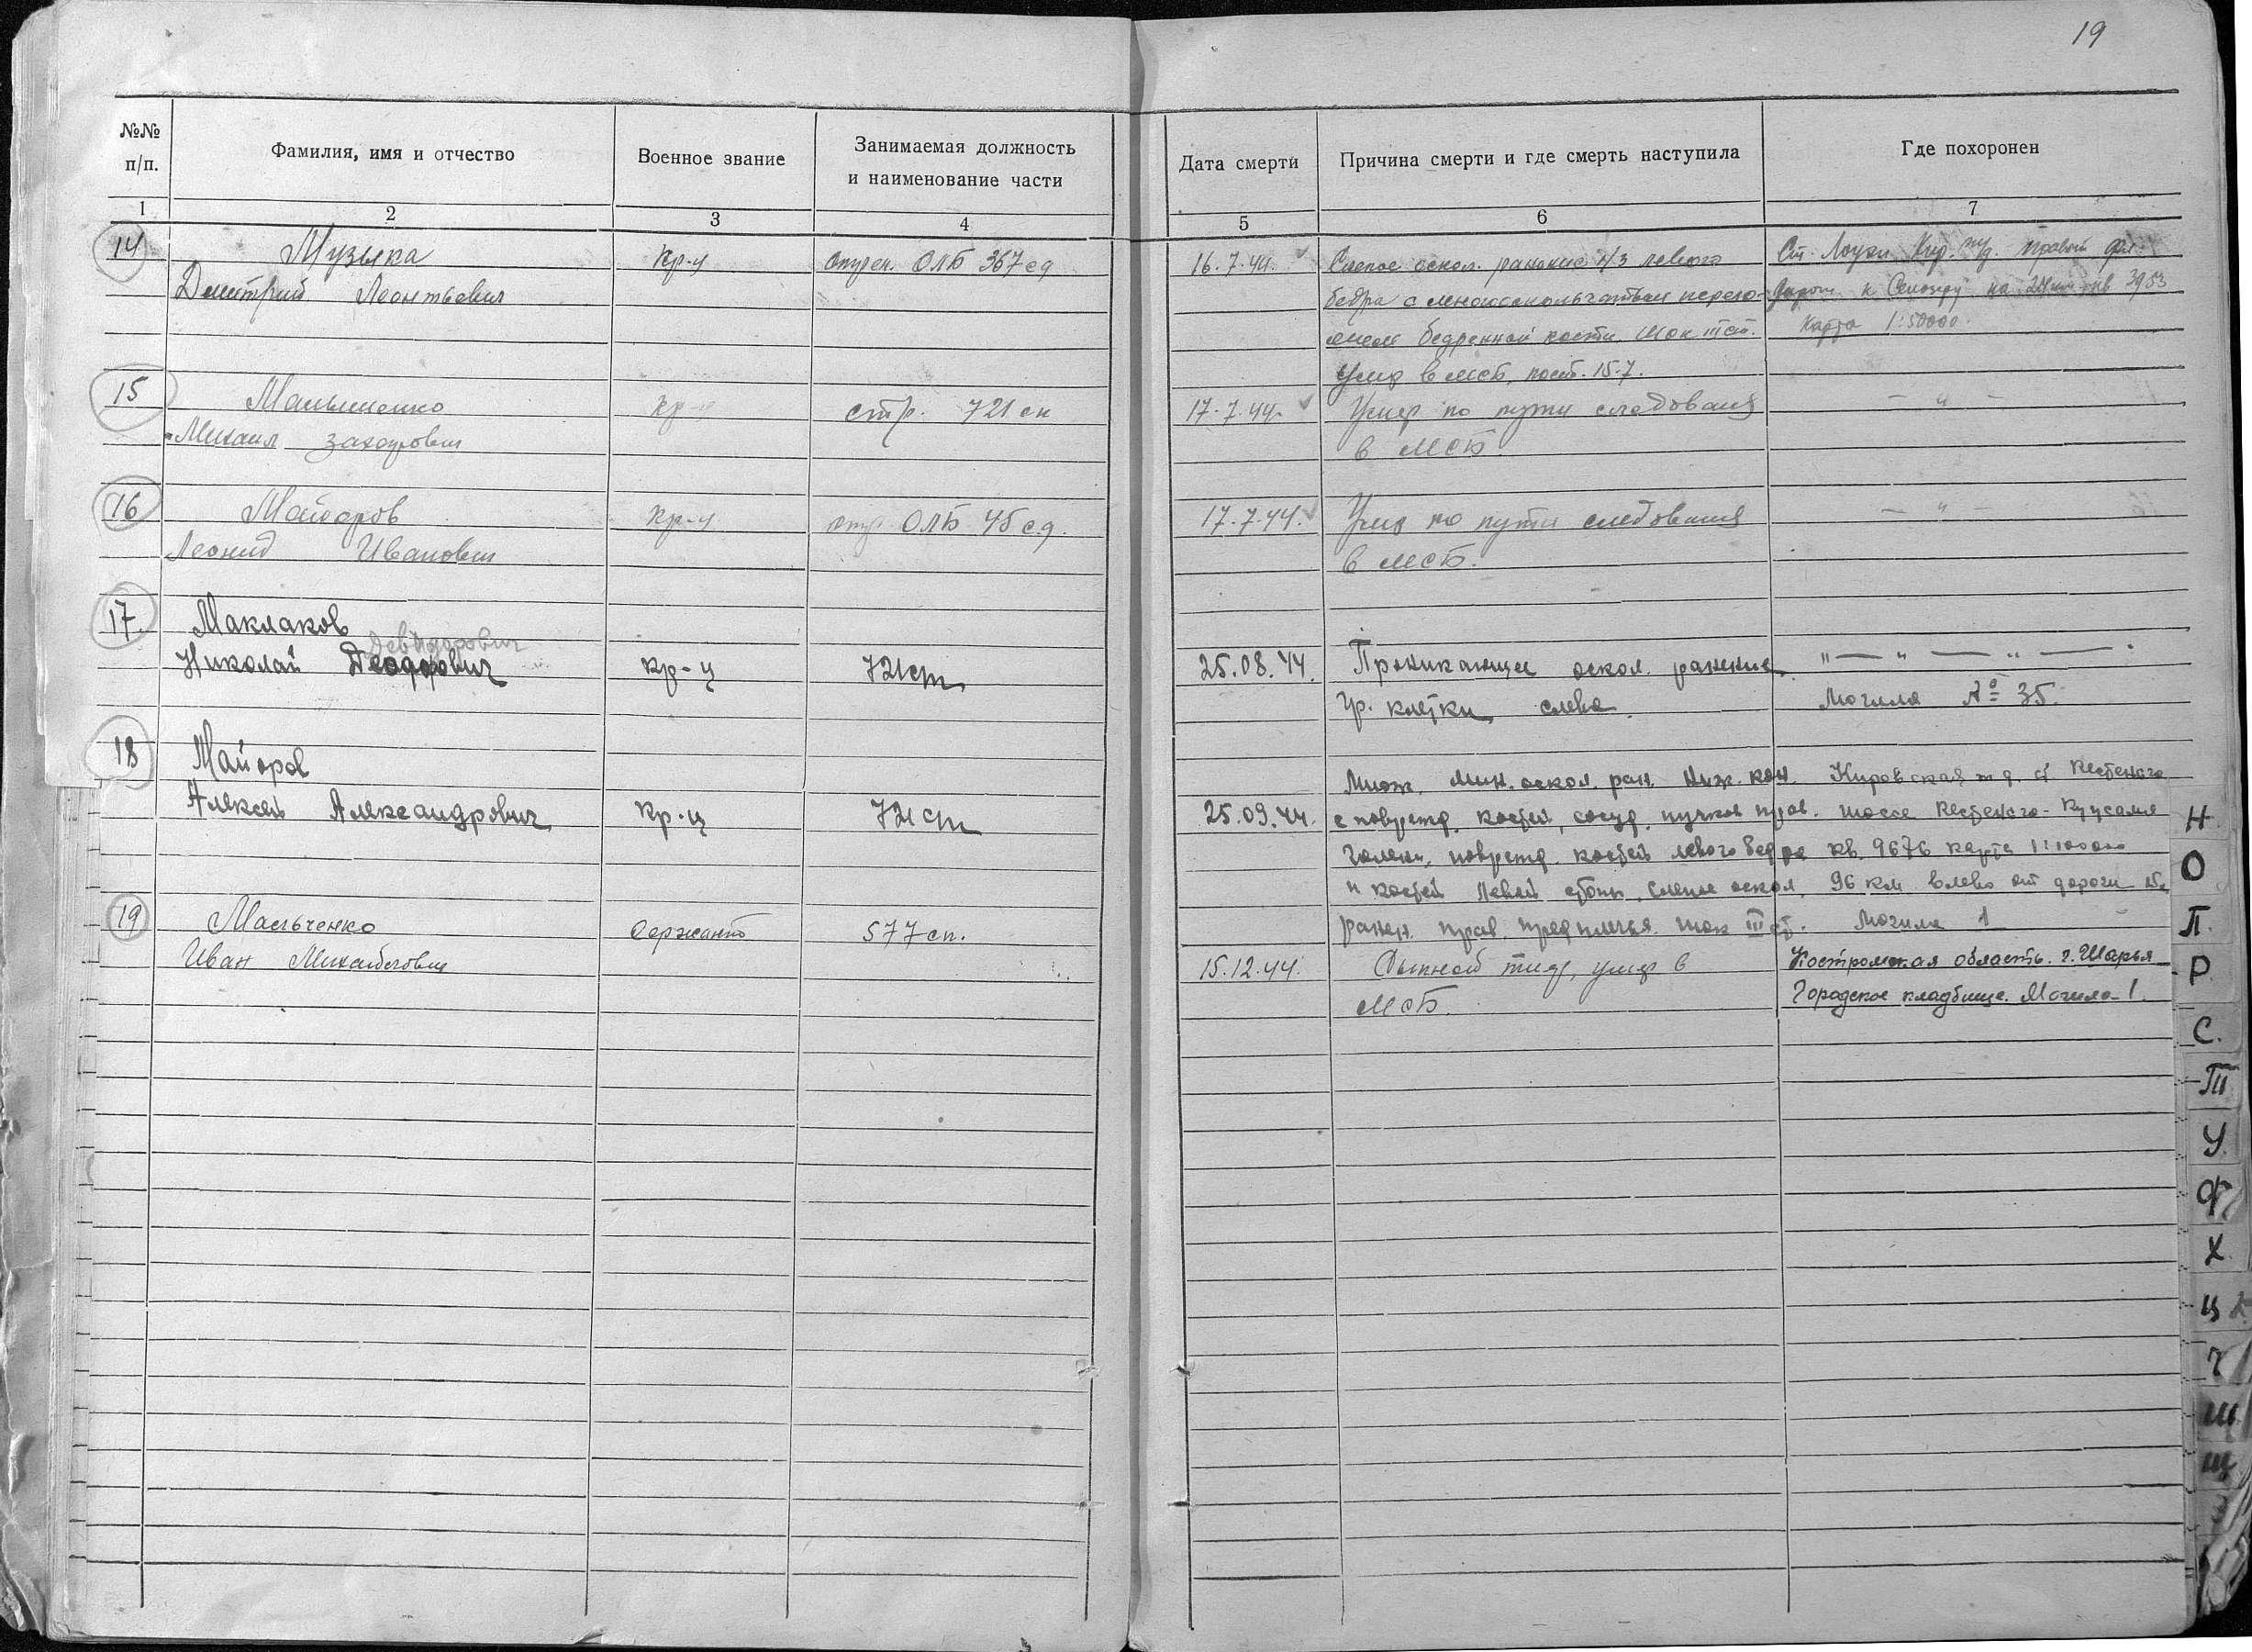 19
№№ п/п.
Фамилия, имя и отчество
Военное звание
Занимаемая должность
и наименование части
Дата смерти
Причина смерти и где смерть наступила
Где похоронен
1 2 3 4 5 6 7
14 Музыка кр-ц ОЛБ 367 сд 16.7.44. Слепое оскол. ранение н/3 левого Ст. Лоухи Кир. жд. правой
Дмитрий Леонтьевич бедра с многооскольчатым перело- к на 24 км кв 3953
мом бедренной кости. Шок III ст. Карта 1:50000.
Умер в мсб, пост. 15.7.
15 Малышенко кр-ц стр. 721 сп 17.7.44. Умер по пути следования — " —
Михаил Захарович в МСБ
16 Майоров кр-ц ОЛБ 45 сд. 17.7.44. Умер по пути следования — " —
Леонид Иванович в мсб.
17. Маклаков
Девидорович
Николай кр-ц 721 сп 25.08.44. Проникающее оскол. ранение " — " — " — "
гр. клетки слева. Могила № 35.
18 Майоров
Множ. мин. оскол. ран. ниж. кон. Кировская ж д. ст Кестеньга
Алексей Александрович кр-ц 721 сп 25.09.44. с поврежд. костей, сосуд. пучков прав. шоссе Кестеньга - Куусамо
голени, поврежд. костей левого бедра кв. 9676 карта 1:100000
и костей левой стопы. Слепое оскол. 96 км влево от дороги
19 Мальченко Сержант 577 сп. ранен. прав. предплечья. шок III ст. Могила 1
Иван Михайлович 15.12.44. Сыпной тиф, умер в Костромская область. г. Шарья
МСБ. Городское кладбище. Могила-1.
Н
О
П.
Р
С.
Т
У.
Ф
Х
Ц
Ч
Ш
Щ